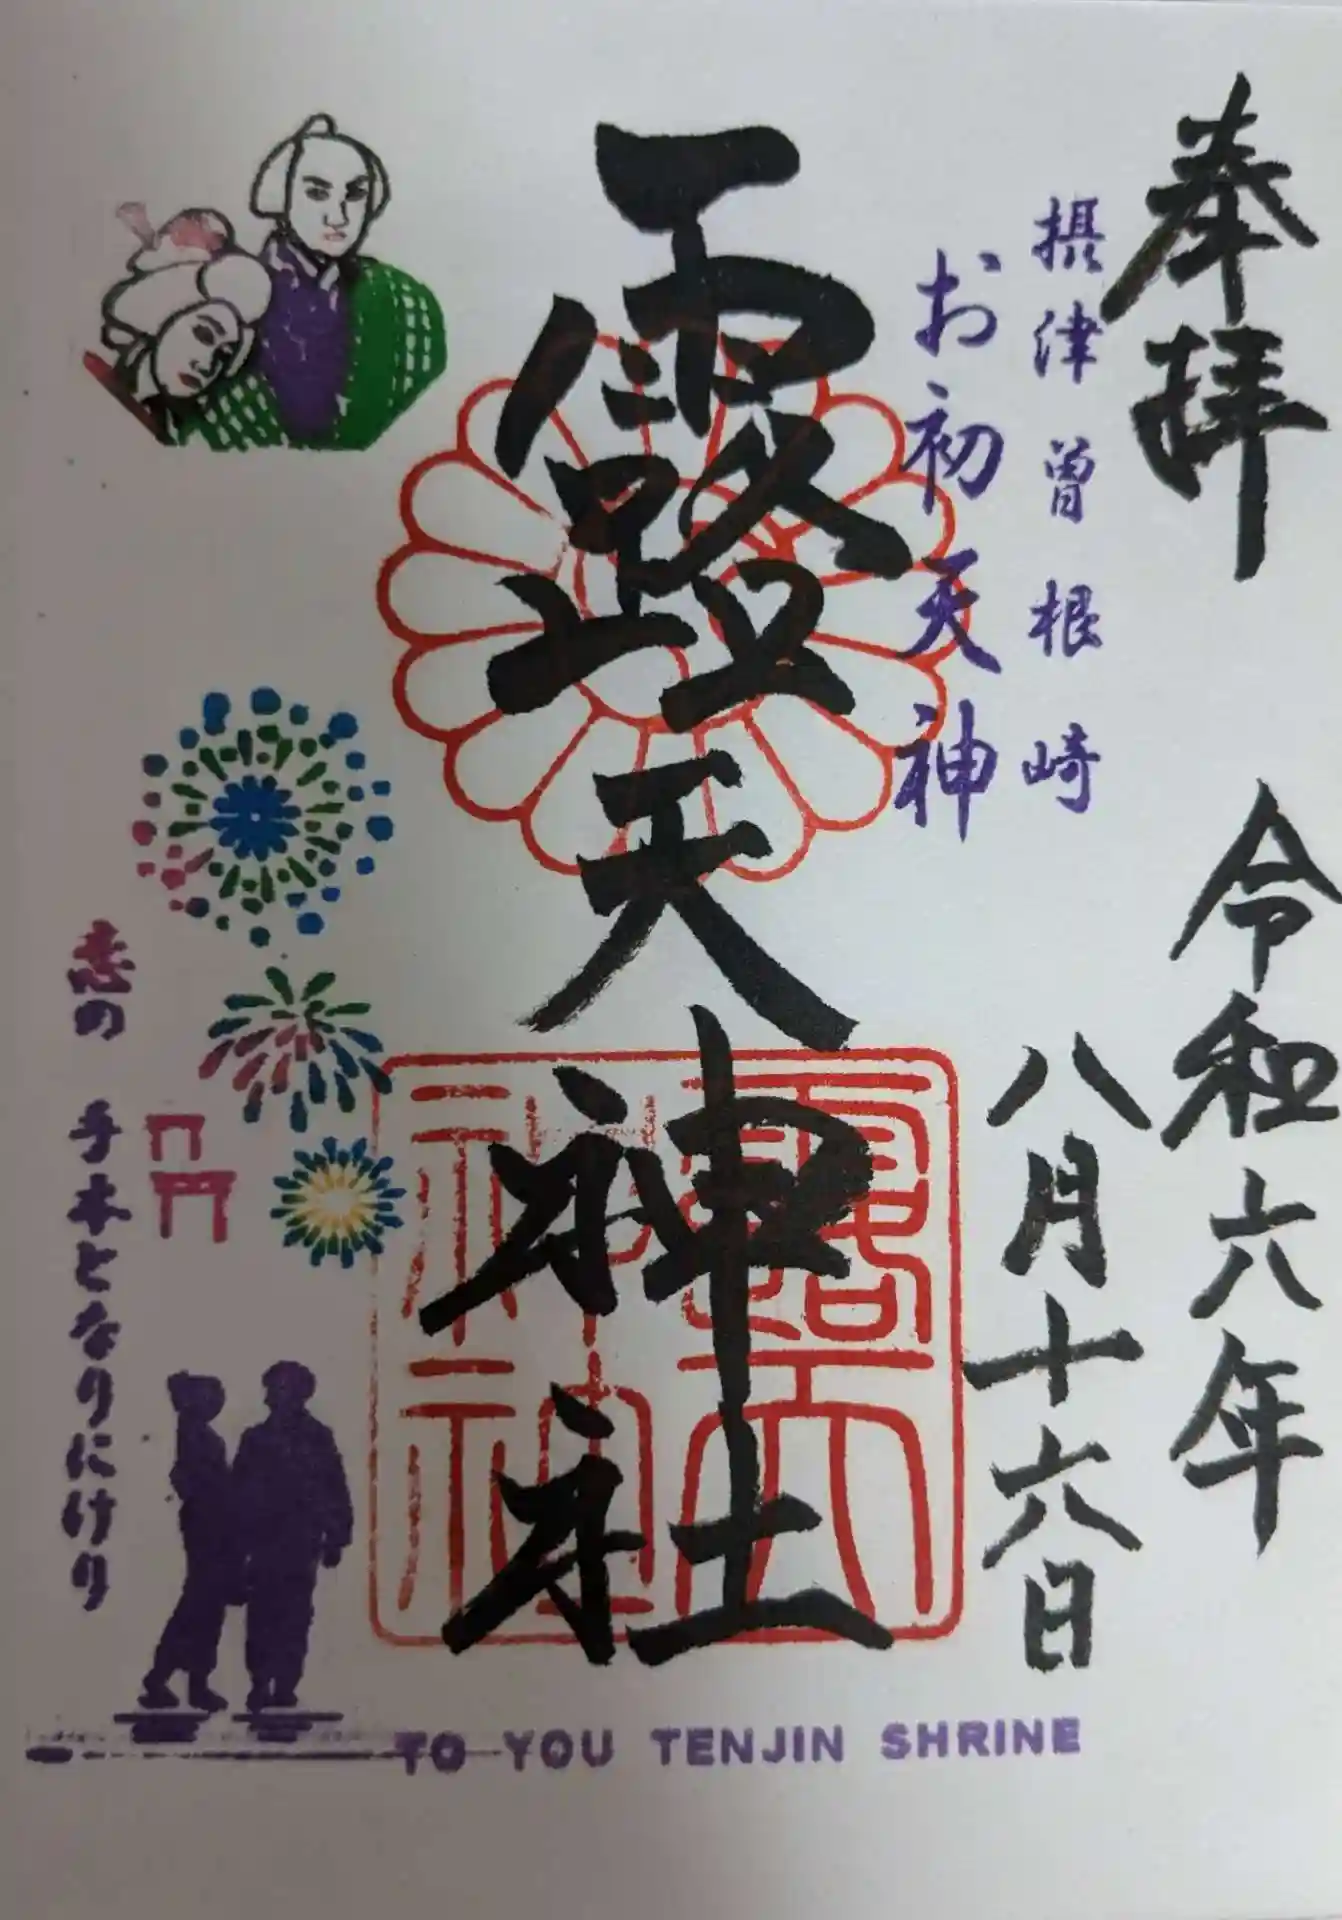 奉拝
令和六年
八月十六日
摂津曽根崎
お初天神
露天神社
露天
神社
恋の手本となりにけり
TO YOU TENJIN SHRINE